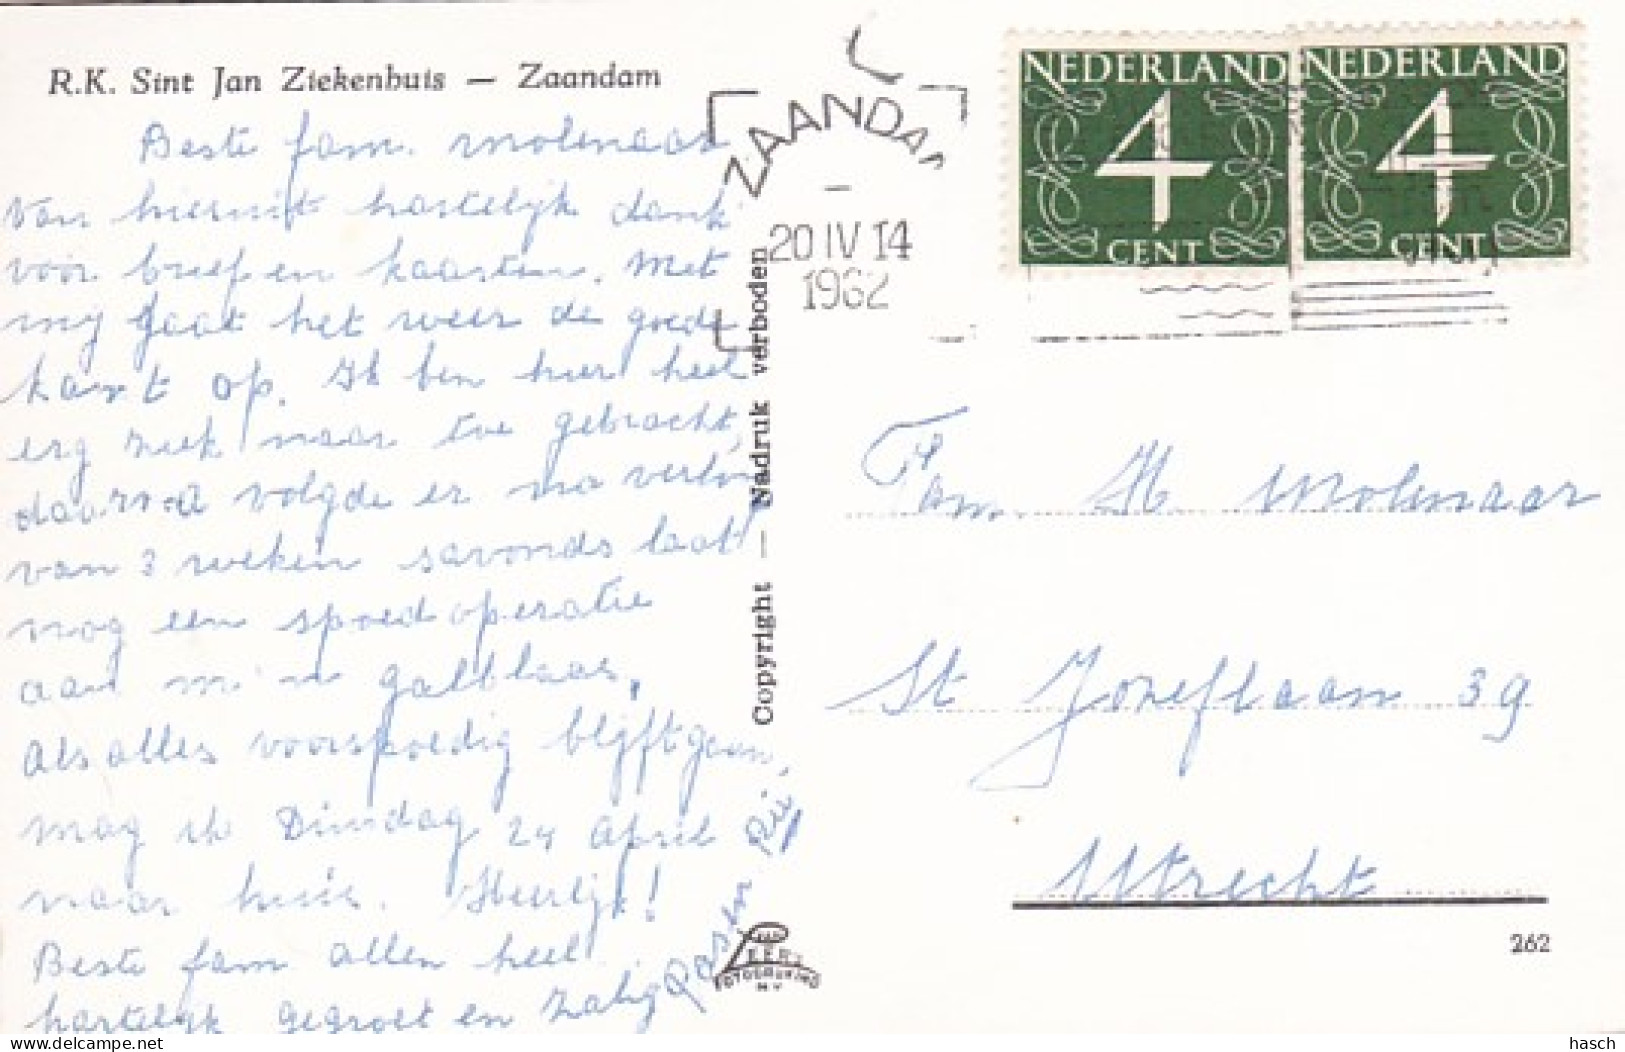 R.K. Sint Jan Ziekenhuis — Zaandam
Beste fam. Molenaar
Van hieruit hartelijk dank
voor brief en kaarten. Met
my gaat het weer de goede
kant op. Ik ben hier heel
erg ziek naar toe gebracht,
daarna volgde er na verloop
van 3 weken savonds laat
nog een spoed operatie
aan m'n galblaas.
Als alles voorspoedig blijft gaan,
mag ik Dinsdag 24 April
naar huis. Heerlijk!
Beste fam allen heel
hartelijk gegroet en Zalig
Pasen Rie
Copyright — Nadruk verboden
ZAANDA
20 IV 14
1962
NEDERLAND
4
CENT
NEDERLAND
4
CENT
Fam. H Molenaar
St Jozeflaan 39
Utrecht
262
FOTODRUKKERIJ
N.V.
https://www.delcampe.net
hasch